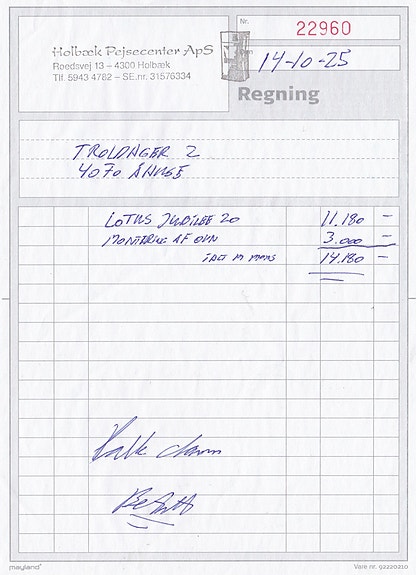 Nr.
22960
Holbæk Pejsecenter ApS
Roedsvej 13 – 4300 Holbæk
Tlf. 5943 4782 – SE.nr. 31576334
14-10-25
Regning
TROLDAGER 2
4070
LOTUS JUBILEE 20 11.180 –
MONTERING AF OVN 3.000 –
IALT M MOMS 14.180 –
mayland®
Vare nr. 92220210